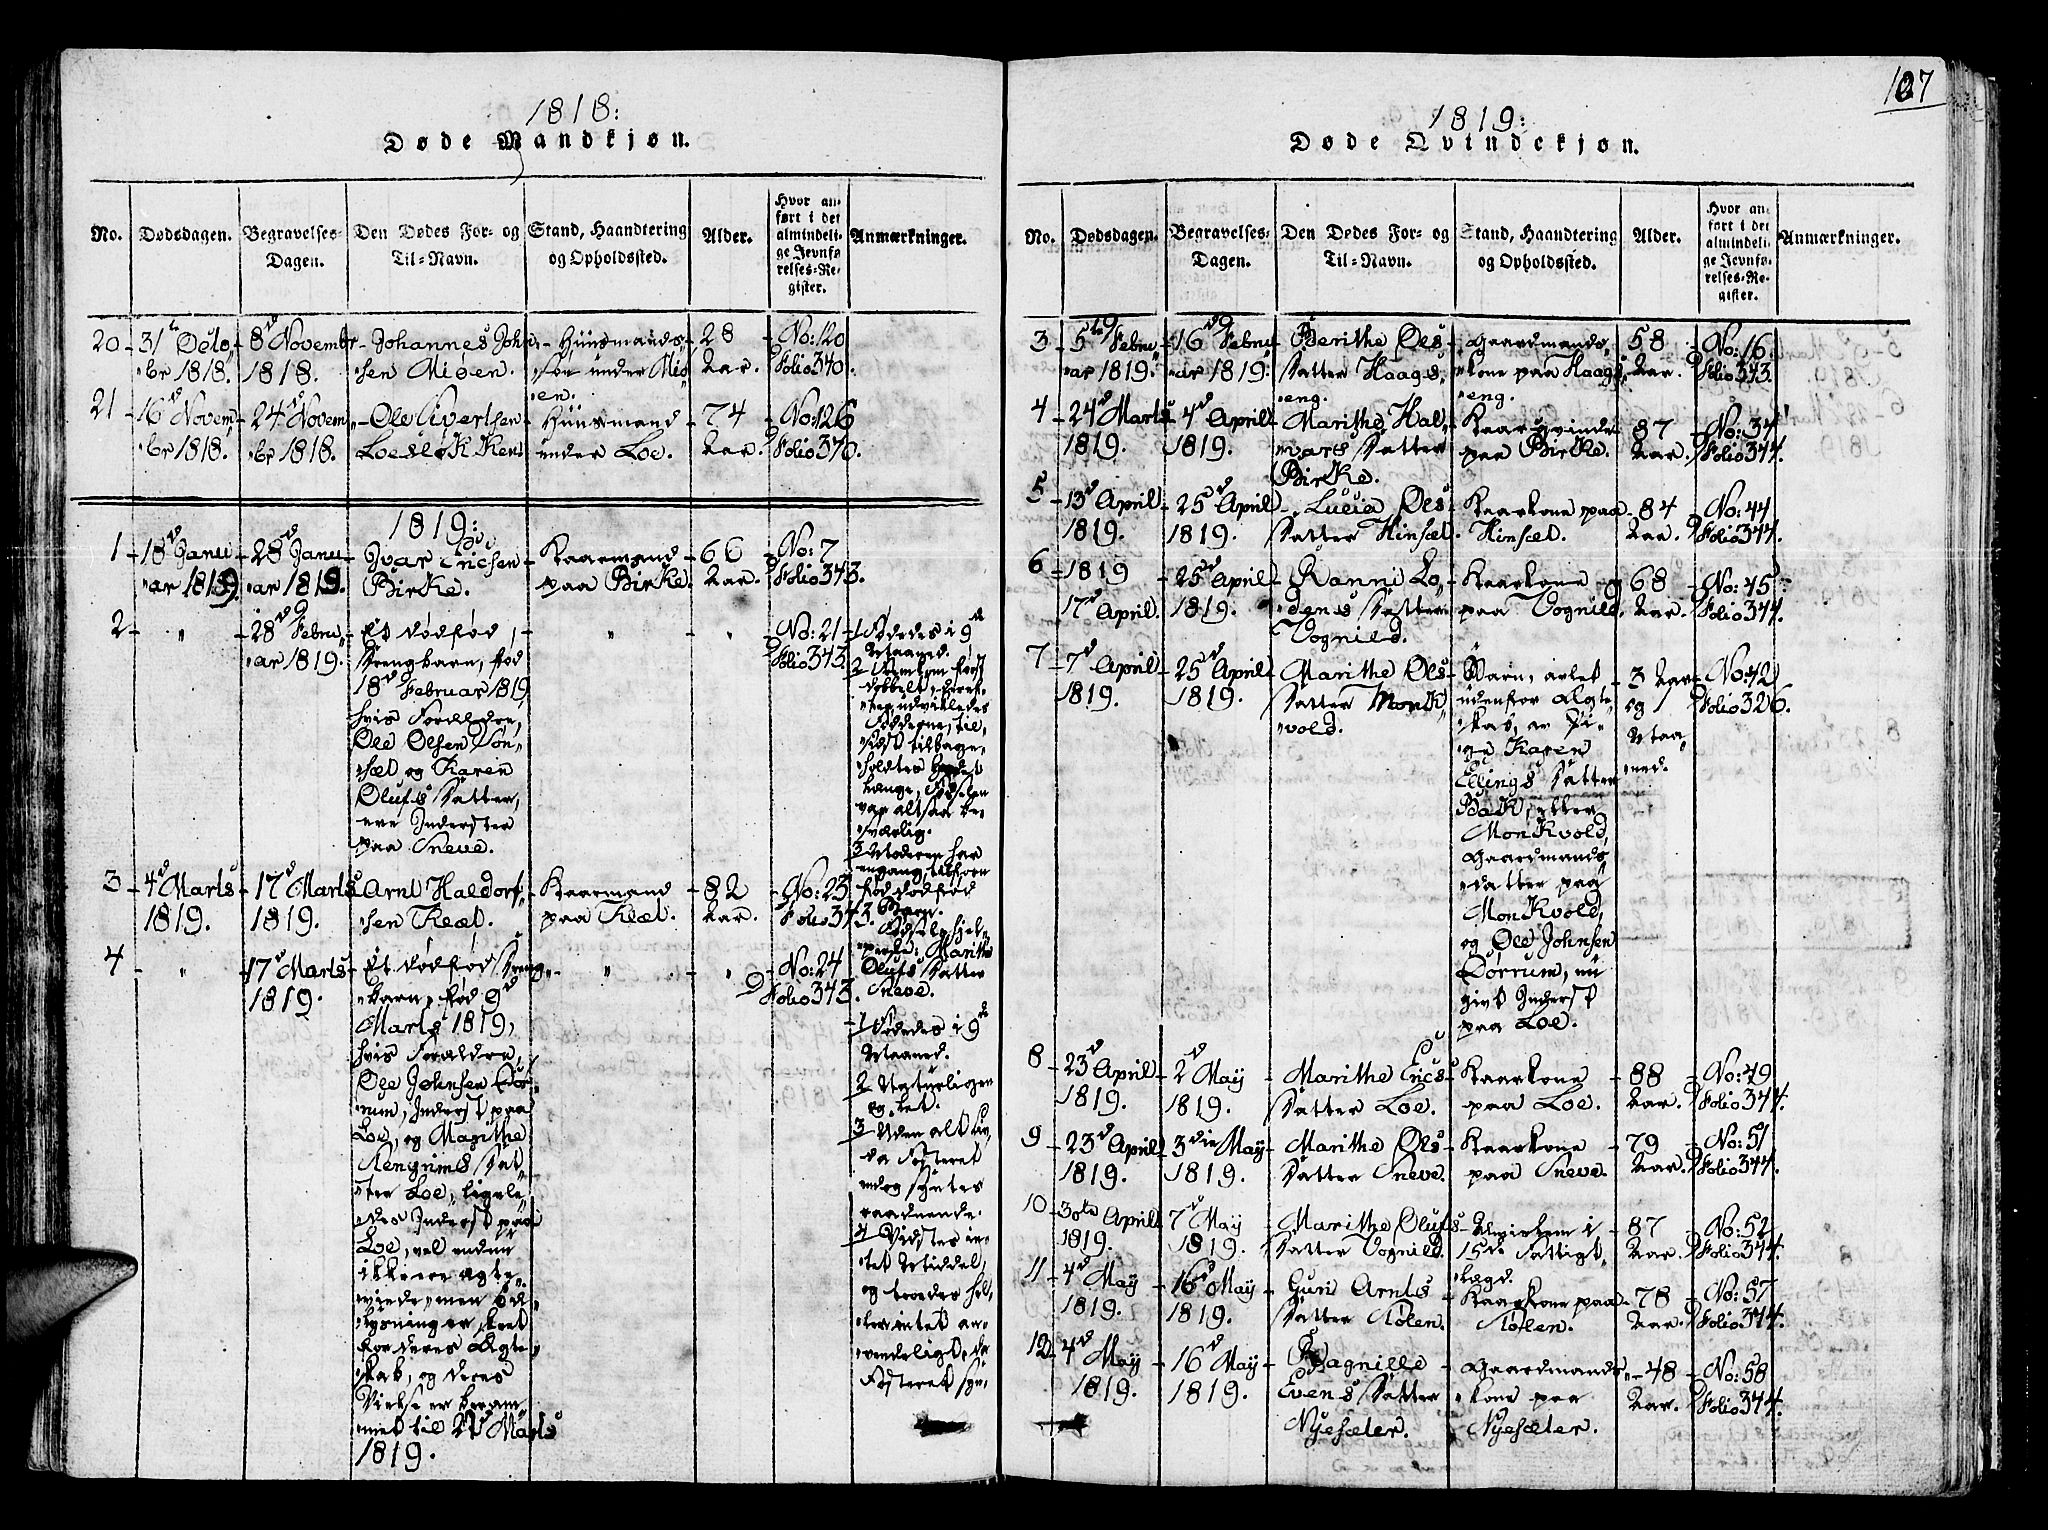 1818:
Døde Mandkjøn.
No.
Dødsdagen.
Begravelses-
Dagen.
Den Dødes For- og
Til-Navn.
Stand, Haandtering
og Opholdssted.
Alder.
Hvor an-
ført i det
almindeli-
ge Jevnfø-
relses-Re-
gister.
Anmærkninger.
20 31te Octo
br 1818.
8d Novembr
1818.
Johannes John
sen Miøen.
Huusmands
søn under Miø
en.
28
Aar.
No: 120
Folio 370.
21 16d Novem
br 1818.
24d Novem
br 1818.
Ole Sivertsen
Loesløkken
Huusmand
under Loe.
74
Aar.
No: 126
Folio 370.
1819:
1 18d Janu
ar 1819.
28d Janu
ar 1819.
Ivar Ericsen
Birke.
Kaarmand
paa Birke.
66
Aar.
No: 7
Folio 343.
2 "
28d Febru
ar 1819.
Et dødfød
Drengbarn, fød
18d Februar 1819
hvis Forældre,
Ole Olsen
og Karen
Olufs Datter,
ere Inderster
paa Sneve.
"
"
No: 21
Folio 343.
1 Fødedes i 9de
Maaned.
2
3 Moderen har
engang tilforn
fød dødfød
Barn.
Marithe
Olufs Datter
Sneve.
3 4d Marts
1819.
17d Marts
1819.
Arnt Haldor
sen Treæt.
Kaarmand
paa Treæt.
82
Aar.
No: 23
Folio 343.
4 "
17d Marts
1819.
Et dødfød Dreng
barn, fød 9d
Marts 1819,
hvis Forældre,
Ole Johnsen Dør
rum, Inderst paa
Loe, og Marithe
Datter
Loe, ligele
des Inderst paa
Loe, vel endnu
ikke ere Ægte
viede, men
lysning er skeet
for deres Ægte
skab, og deres
Vielse er beram
met til Marts
1819.
"
"
No: 24
Folio 343.
1 Fødedes i 9de
Maaned.
2 Naturligen
og let.
3 Uden alt Liv,
da Fosteret
endog syntes
raadnende.
4 Vidstes in
tet Middel,
og troedes hel
ler intet an
vendeligt, da
Fosteret syn
107
1819:
Døde Qvindekjøn.
No.
Dødsdagen.
Begravelses-
Dagen.
Den Dødes For- og
Til-Navn.
Stand, Haandtering
og Opholdssted.
Alder.
Hvor an-
ført i det
almindeli-
ge Jevnfø-
relses-Re-
gister.
Anmærkninger.
3 5te Febru
ar 1819.
16d Febru
ar 1819.
Berithe Ols
Datter Haags
eng.
Gaardmands
kone paa Haags
eng.
58
Aar.
No: 16.
Folio 343.
4 24d Marts
1819.
4d April
1819.
Marithe Hal
vars Datter
Birke.
Kaarqvinde
paa Birke.
87
Aar.
No: 34
Folio 344.
5 13d April
1819.
25d April
1819.
Lucia Ols
Datter Hinsæt.
Kaarkone paa
Hinsæt.
84
Aar.
No: 44
Folio 344.
6 1819
17d April.
25d April
1819.
Ranni Lo
dens Datter
Vognild.
Kaarkone
paa Vognild.
68
Aar.
No: 45
Folio 344.
7 7d April
1819.
25d April
1819.
Marithe Ols
Datter Monk
vold.
Barn, avlet
udenfor Ægte
skab, av Pi
ge Karen
Ellings Datter
Bak, eller
Monkvold,
Gaardmands
datter paa
Monkvold,
og Ole Johnsen
Dørrum, nu
givt Inderst
paa Loe.
3 Aar
og 1
Maa
ned.
No: 42
Folio 326.
8 23d April
1819.
2d Maÿ
1819.
Marithe Erics
Datter Loe.
Kaarkone
paa Loe.
88
Aar.
No: 49
Folio 344.
9 23d April
1819.
3die Maÿ
1819.
Marithe Ols
Datter Sneve.
Kaarkone
paa Sneve.
79
Aar.
No: 51
Folio 344.
10 30te April
1819.
7d Maÿ
1819.
Marithe Olufs
Datter Vognild.
Almislem i
15de Fattigt
lægd.
87
Aar.
No: 52
Folio 344.
11 4d Maÿ
1819.
16d Maÿ
1819.
Guri Arnts
Datter Stølen.
Kaarkone paa
Stølen.
78
Aar.
No: 57
Folio 344.
12 4d Maÿ
1819.
16d Maÿ
1819.
Ragnille
Evens Datter
Nyesæter.
Gaardmands
kone paa
Nyesæter.
48
Aar.
No: 58
Folio 344.